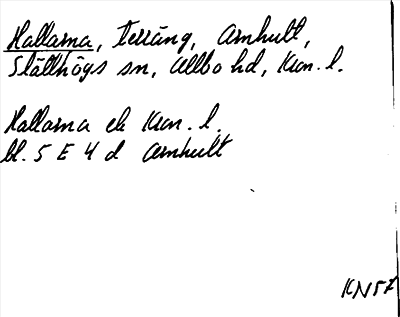 Hallarna, Terräng, Arnhult,
Slätthögs sn, Allbo hd, Kron. l.
Hallarna ek Kron. l.
bl. 5 E 4 d Arnhult
KN57